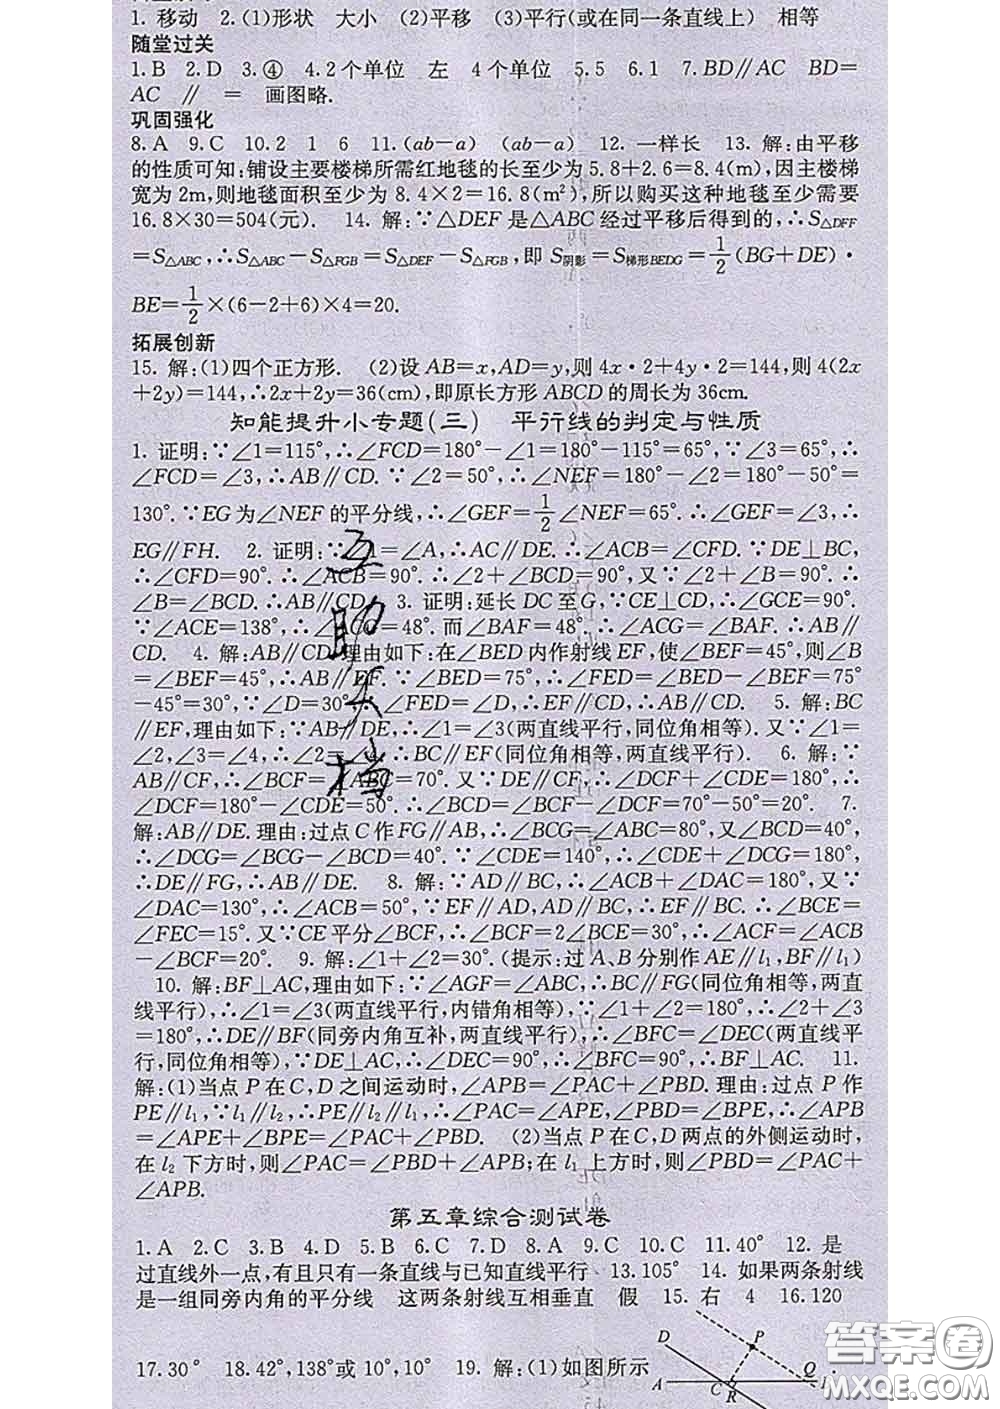 1. 移动　2. (1)形状　大小　(2)平移　(3)平行(或在同一条直线上)　相等
随堂过关
1. B　2. D　3. ④　4. 2个单位　左　4个单位　5. 5　6. 1　7. BD∥AC　BD=
AC　∥　=　画图略.
巩固强化
8. A　9. C　10. 2　1　6　11. (ab-a)　(ab-a)　12. 一样长　13. 解:由平移
的性质可知:铺设主要楼梯所需红地毯的长至少为5.8+2.6=8.4(m),因主楼梯
宽为2m,则地毯面积至少为8.4×2=16.8(m²),所以购买这种地毯至少需要
16.8×30=504(元).　14. 解:∵△DEF是△ABC经过平移后得到的,∴S△DFF
=S△ABC,∴S△ABC-S△FGB=S△DEF-S△FGB,即S阴影=S梯形BEDG=1/2(BG+DE)·
BE=1/2×(6-2+6)×4=20.
拓展创新
15. 解:(1)四个正方形.　(2)设AB=x,AD=y,则4x·2+4y·2=144,则4(2x
+2y)=144,∴2x+2y=36(cm),即原长方形ABCD的周长为36cm.
知能提升小专题(三)　平行线的判定与性质
1. 证明:∵∠1=115°,∴∠FCD=180°-∠1=180°-115°=65°,∵∠3=65°,∴
∠FCD=∠3,∴AB∥CD. ∵∠2=50°,∴∠NEF=180°-∠2=180°-50°=
130°. ∵EG为∠NEF的平分线,∴∠GEF=1/2∠NEF=65°. ∴∠GEF=∠3,∴
EG∥FH.　2. 证明:∵∠1=∠A,∴AC∥DE. ∴∠ACB=∠CFD. ∵DE⊥BC,
∴∠CFD=90°. ∴∠ACB=90°. ∴∠2+∠BCD=90°,又∵∠2+∠B=90°. ∴
∠B=∠BCD. ∴AB∥CD.　3. 证明:延长DC至G,∵CE⊥CD,∴∠GCE=90°.
∵∠ACE=138°,∴∠ACG=48°. 而∠BAF=48°. ∴∠ACG=∠BAF. ∴AB∥
CD.　4. 解:AB∥CD.理由如下:在∠BED内作射线EF,使∠BEF=45°,则∠B
=∠BEF=45°,∴AB∥EF. ∵∠BED=75°,∴∠FED=∠BED-∠BEF=75°
-45°=30°,∵∠D=30°,∴∠FED=∠D,∴EF∥CD,∴AB∥CD.　5. 解:BC
∥EF,理由如下:∵AB∥DE,∴∠1=∠3(两直线平行,同位角相等). 又∵∠1=
∠2,∠3=∠4,∴∠2=∠4,∴BC∥EF(同位角相等,两直线平行).　6. 解:∵
AB∥CF,∴∠BCF=∠ABC=70°. 又∵DE∥CF,∴∠DCF+∠CDE=180°,∴
∠DCF=180°-∠CDE=50°. ∴∠BCD=∠BCF-∠DCF=70°-50°=20°.　7.
解:AB∥DE. 理由:过点C作FG∥AB,∴∠BCG=∠ABC=80°,又∠BCD=40°,
∴∠DCG=∠BCG-∠BCD=40°. ∵∠CDE=140°,∴∠CDE+∠DCG=180°,
∴DE∥FG,∴AB∥DE.　8. 解:∵AD∥BC,∴∠ACB+∠DAC=180°,又∵
∠DAC=130°,∴∠ACB=50°,∵EF∥AD,AD∥BC,∴EF∥BC. ∴∠BCE=
∠FEC=15°. 又∵CE平分∠BCF,∴∠BCF=2∠BCE=30°,∴∠ACF=∠ACB
-∠BCF=20°.　9. 解:∠1+∠2=30°. (提示:过A、B分别作AE∥l₁,BF∥l₁)
10. 解:BF⊥AC,理由如下:∵∠AGF=∠ABC,∴BC∥FG(同位角相等,两直
线平行),∴∠1=∠3(两直线平行,内错角相等),∵∠1+∠2=180°,∴∠2+∠3
=180°,∴DE∥BF(同旁内角互补,两直线平行),∴∠BFC=∠DEC(两直线平
行,同位角相等),∵DE⊥AC,∴∠DEC=90°,∴∠BFC=90°,∴BF⊥AC.　11.
解:(1)当点P在C,D之间运动时,∠APB=∠PAC+∠PBD. 理由:过点P作
PE∥l₁,∵l₁∥l₂,∴PE∥l₂∥l₁,∴∠PAC=∠APE,∠PBD=∠BPE,∴∠APB
=∠APE+∠BPE=∠PAC+∠PBD.　(2)当点P在C,D两点的外侧运动时,
在l₂下方时,则∠PAC=∠PBD+∠APB;在l₁上方时,则∠PBD=∠PAC+
∠APB.
第五章综合测试卷
1. A　2. C　3. B　4. D　5. B　6. C　7. D　8. A　9. C　10. C　11. 40°　12. 是
过直线外一点,有且只有一条直线与已知直线平行　13. 105°　14. 如果两条射线
是一组同旁内角的平分线　这两条射线互相垂直　假　15. 右　4　16. 120
17. 30°　18. 42°,138°或10°,10°　19. 解:(1)如图所示
D P A C R Q
互助文档
答案圈
MXQE.COM